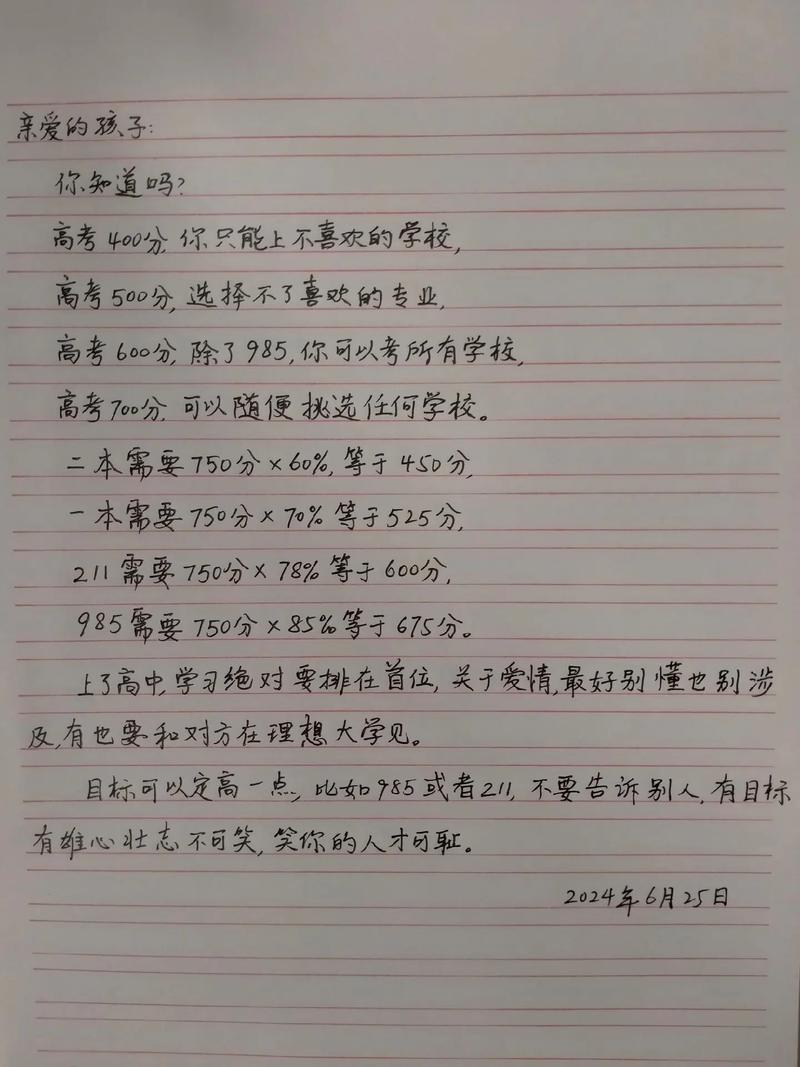 亲爱的孩子:
你知道吗?
高考400分,你只能上不喜欢的学校,
高考500分,选择不了喜欢的专业,
高考600分,除了985,你可以考所有学校,
高考700分,可以随便挑选任何学校。
二本需要750分×60%,等于450分,
一本需要750分×70%等于525分,
211需要750分×78%等于600分,
985需要750分×85%等于675分。
上了高中,学习绝对要排在首位,关于爱情,最好别懂也别涉
及,有也要和对方在理想大学见。
目标可以定高一点,比如985或者211,不要告诉别人,有目标
有雄心壮志不可笑,笑你的人才可耻。
2024年6月25日